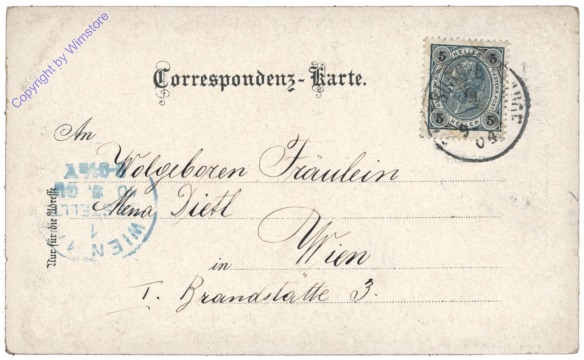 Copyright by Wimstore
Correspondenz-Karte.
5 HELLER 5
5 HELLER 5
04
An
Wolgeboren Fräulein
Mena Dietl
Wien
in
I. Brandstätte 3.
Nur für die Adresse
WIEN 1
1